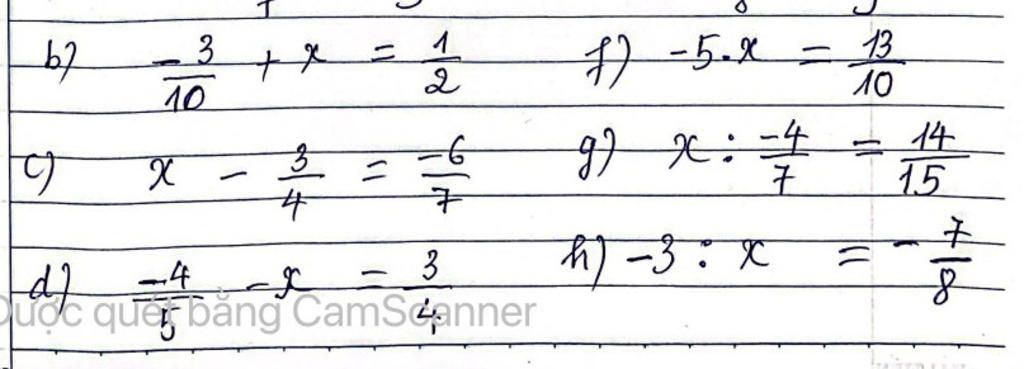 b) -3/10 + x = 1/2
f) -5.x = 13/10
c) x - 3/4 = -6/7
g) x : -4/7 = 14/15
d) -4/5 - x = 3/4
h) -3 : x = - 7/8
Được quét bằng CamScanner